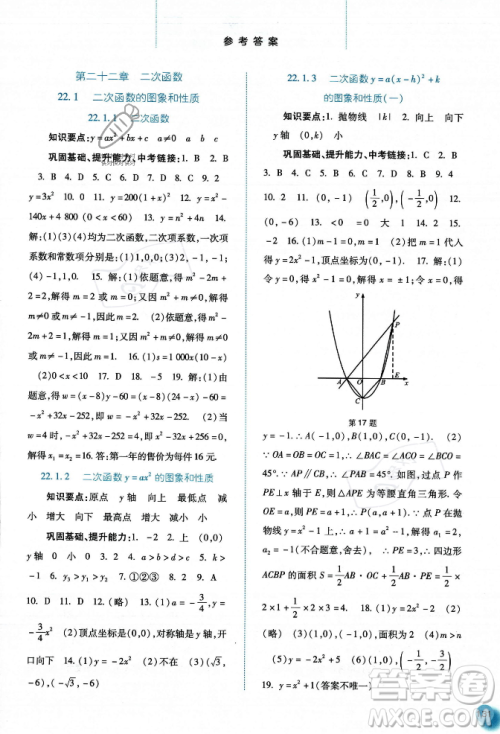 参考答案
第二十二章 二次函数
22.1 二次函数的图象和性质
22.1.1 二次函数
知识要点：y=ax²+bx+c a≠0 a b c
巩固基础、提升能力、中考链接：1. B 2. B
3. D 4. B 5. A 6. C 7. B 8. B 9. D 10.
y=3x² 11. 2 12. y=200(1-x)² 13. y=x²-
140x+4 800(0<x<60) y=n²+n 14.
解：(1)(3)(4)均为二次函数，二次项系数，一次项
系数和常数项分别是：(1)-1，-1，-1；(3)1，-2，
0；(4)1，1，-1 15. 解：(1)依题意，得m²-m=
0，解得m=0或m=1 又因m≠0，所以m=1
(2)依题意，得m²-m≠0，解得m≠1且m≠0 又因
m≠0，所以m≠1且m≠0 16. (1)s=1000x(10-x)
(2)0<x<10 17. D 18. -5 19. 解：(1)由
题意，得w=(x-8)y-94=(x-8)(24-x)-
=-x²+32x-252. 即w=-x²+32x-252. (2)当
w=4时，有-x²+32x-252=4，解得x₁=x₂=
16. 答：该产品第一年的售价为每件16元.
22.1.2 二次函数y=ax²的图象和性质
知识要点：原点 y轴 向上 最低点 减
小 增大 向下 最高点 增大 减小
巩固基础、提升能力：1. B 2. D 3. 向下
y轴 0 小 0 4. a>b>d>c 5. a>b>d>
c 6. y₃>y₁>y₂ 7. ①②③ 8. 2 9. A
10. B 11. D 12. (略) 13. (1)a=-3/4，y=
-3/4x² (2)顶点坐标为(0，0)，对称轴为y轴，开
口向下 14. (1)y=-x² (2)不在 (3)(√3，
-3)，(-√3，-3) 15. (略)
22.1.3 二次函数y=a(x-h)²+k
的图象和性质(一)
知识要点：1. 抛物线 |k| 上 |k| 下
y轴 (0，k) 上 下
巩固基础、提升能力、中考链接：1. C 2. B
3. B 4. D 5. D 6. B 7. C 8. D 9. A
10. 2 11. (0，-1) (1/2，0)，(-1/2，0)
12. (0，-6) (1/2，0)，(-1/2，0) 13. 下 y轴
(0，1) x=0 大 1 14. ① 15.
22 16. (1)m=1 P(1，0) (2)把m=1代人
y=mx²-1，得y=x²-1，顶点坐标为(0，-1)
17. 解：(1)令y=0，得x²-1=0，解得x=±1；令x
=0，得y=-1. ∴ A(-1，0)，B(1，0)，C(0，-1)
y
P
A O B E x
C
第17题
(2)∵ OA=OB=OC=1，∴ ∠BAC=∠BCO=
45°. ∵ AP∥CB，∴ ∠PAB=45°. 如图，过点P作
PE⊥x轴于E，则△APE为等腰直角三角形. 令
OE=a，则PE=a+1. ∴ P(a，a+1). ∵ 点P在抛
物线y=x²-1上，∴ a+1=a²-1，解得a₁=2，
a₂=-1(不合题意，舍去). ∴ PE=3，∴ 四边形
ACBP的面积S=1/2AB·OC+1/2AB·PE=1/2
×2×1+1/2×2×3=4 18. (1)y=-x²+2
(2)y=-x²-1 (3)相等，面积为2 (4)m>n
(5)y=x²-2 (6)(略) (7)(-1/2，-3/2)
19. y=x²+1(答案不唯一)